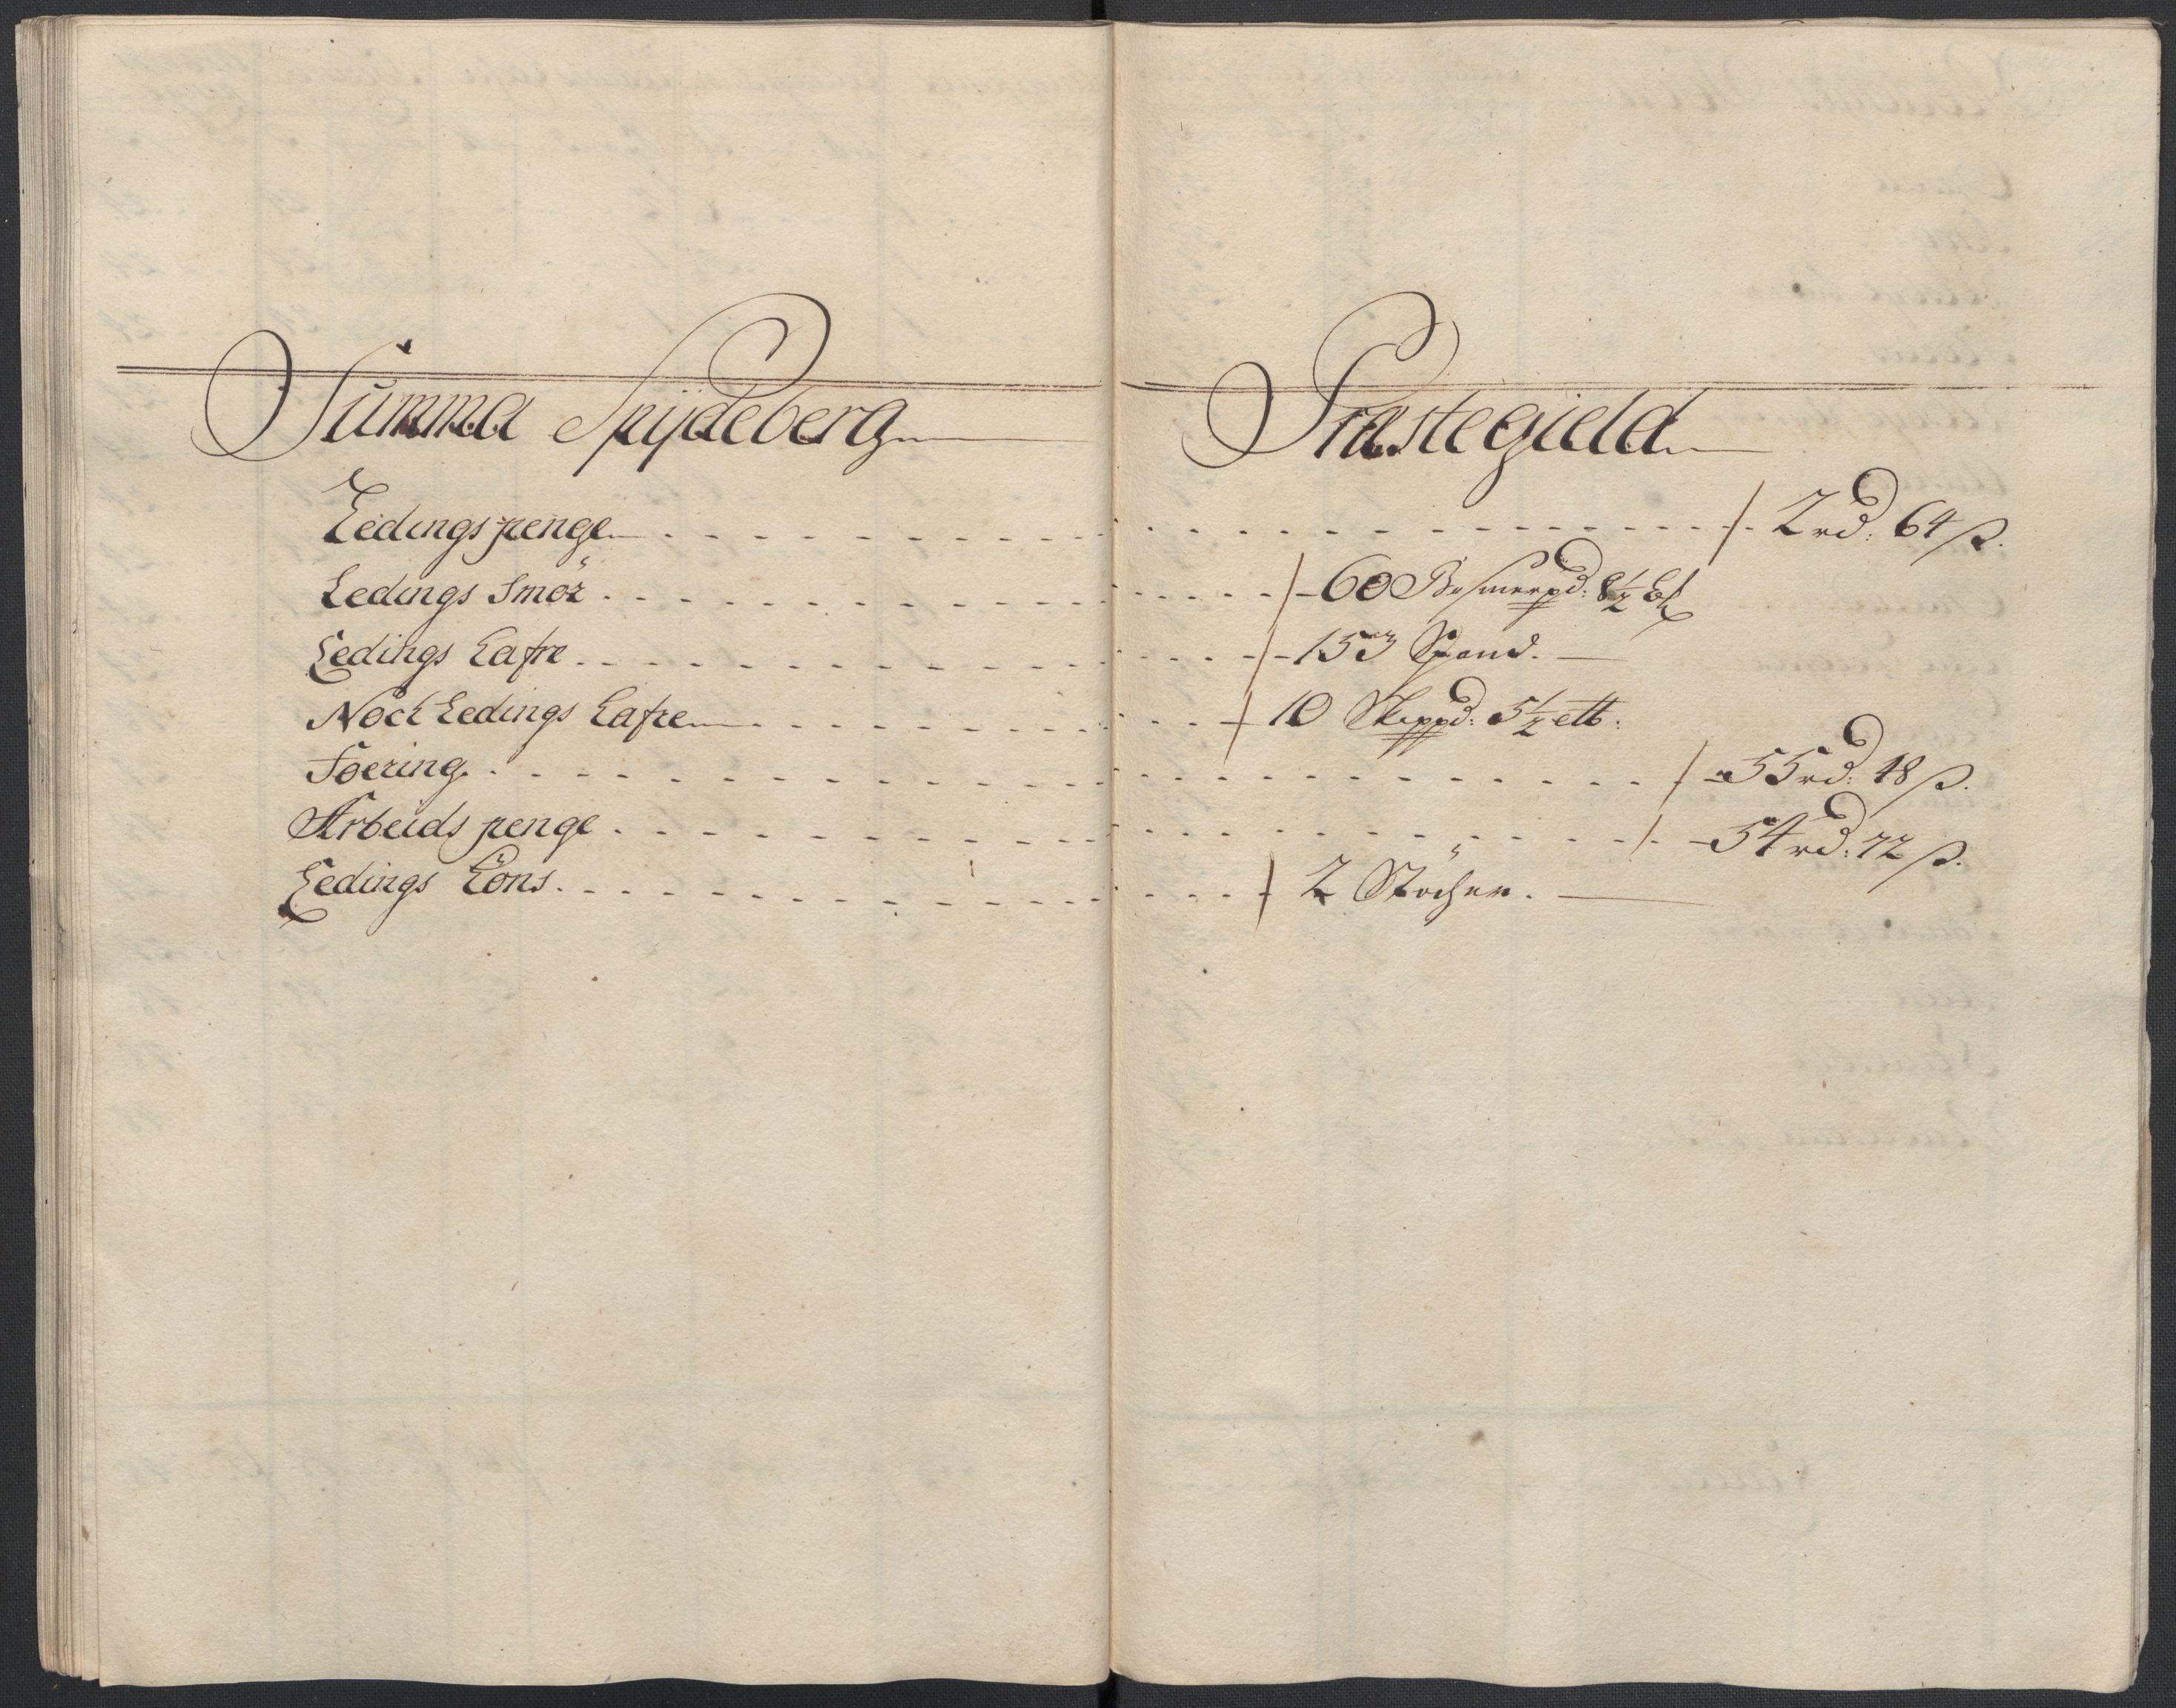 Summa Spydeberg Præstegield
Ledings penge 2 rd: 64 ß.
Ledings Smör 60 Bismerpd: 8½
Ledings Hafre 153 Spand.
Noch Ledings Hafre 10 Skippd: 5½
Foering 55 rd: 48 ß.
Arbeids penge 54 rd: 72 ß.
Ledings Höns 2 Støcher.